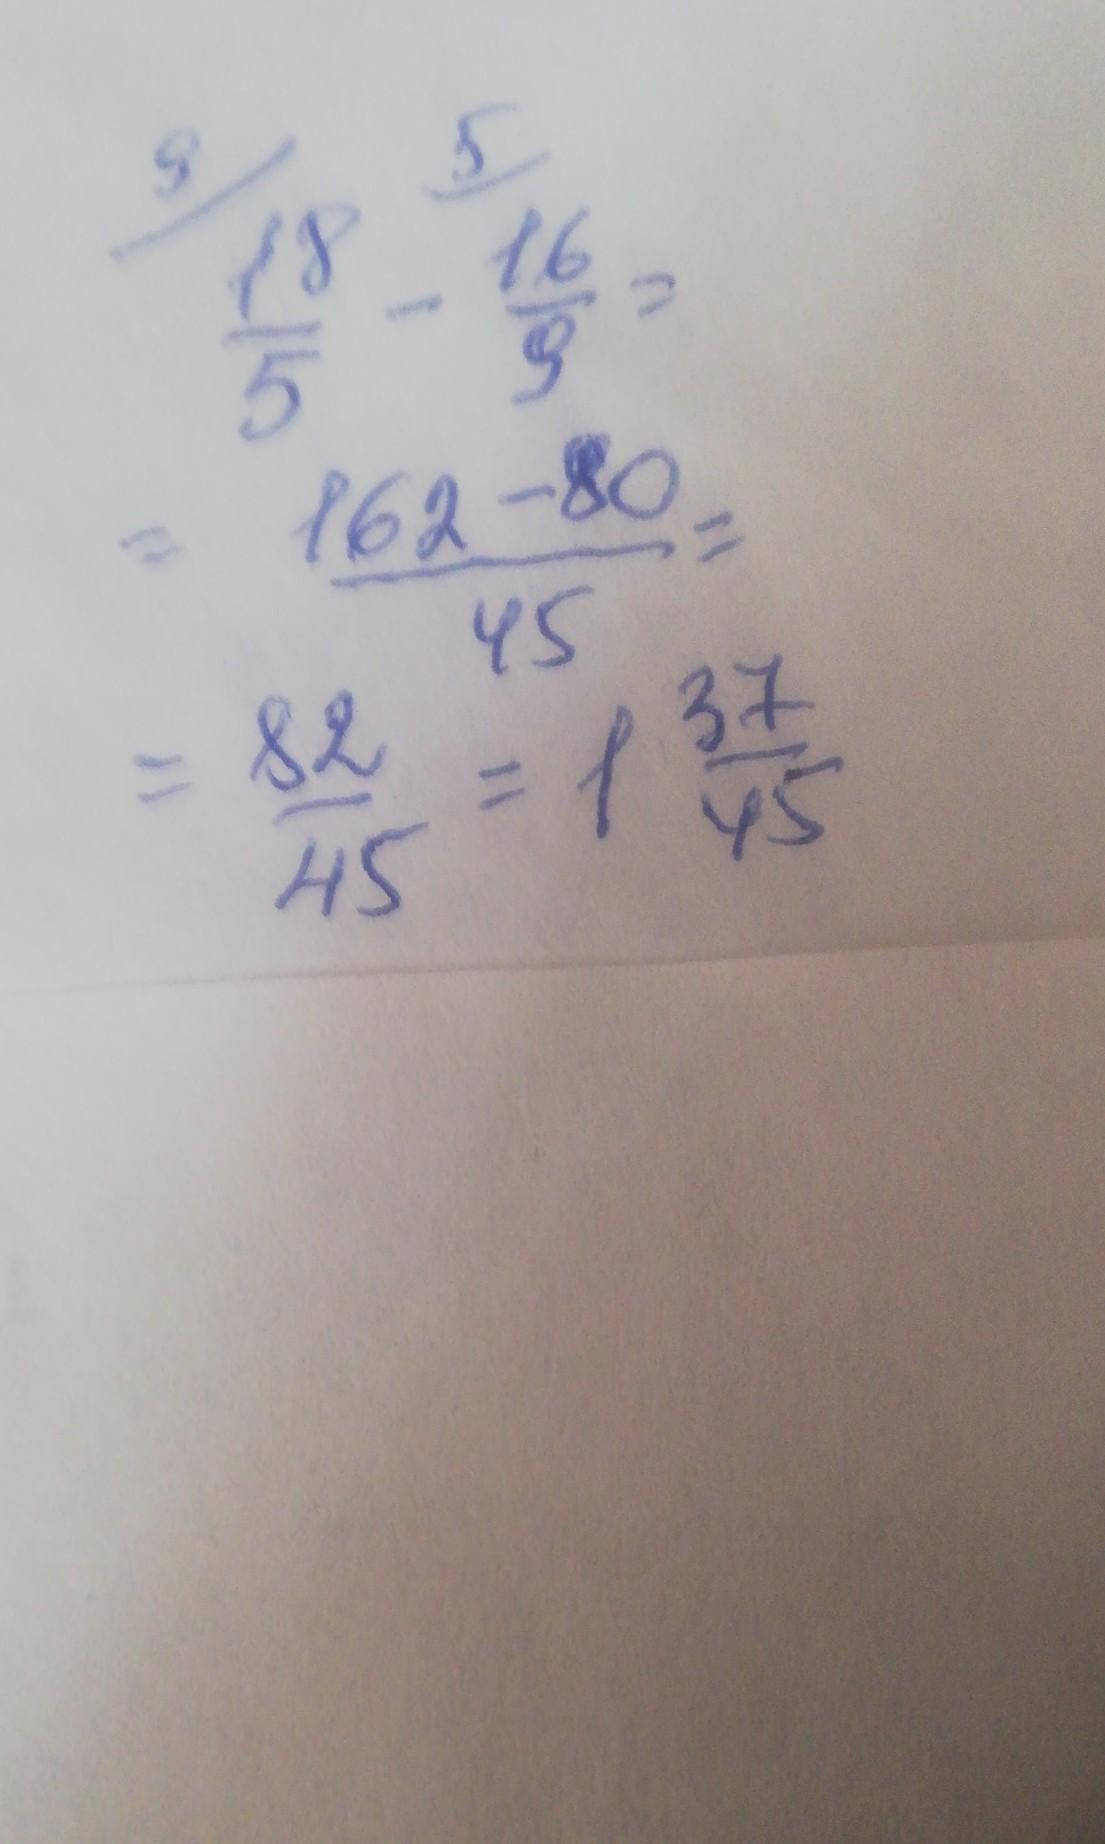 9/ 5/
18/5 - 16/9 =
= 162 - 80 / 45 =
= 82/45 = 1 37/45